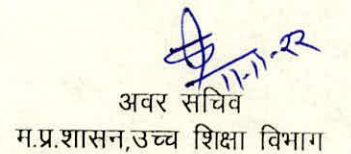 11-11-22
अवर सचिव
म.प्र.शासन,उच्च शिक्षा विभाग